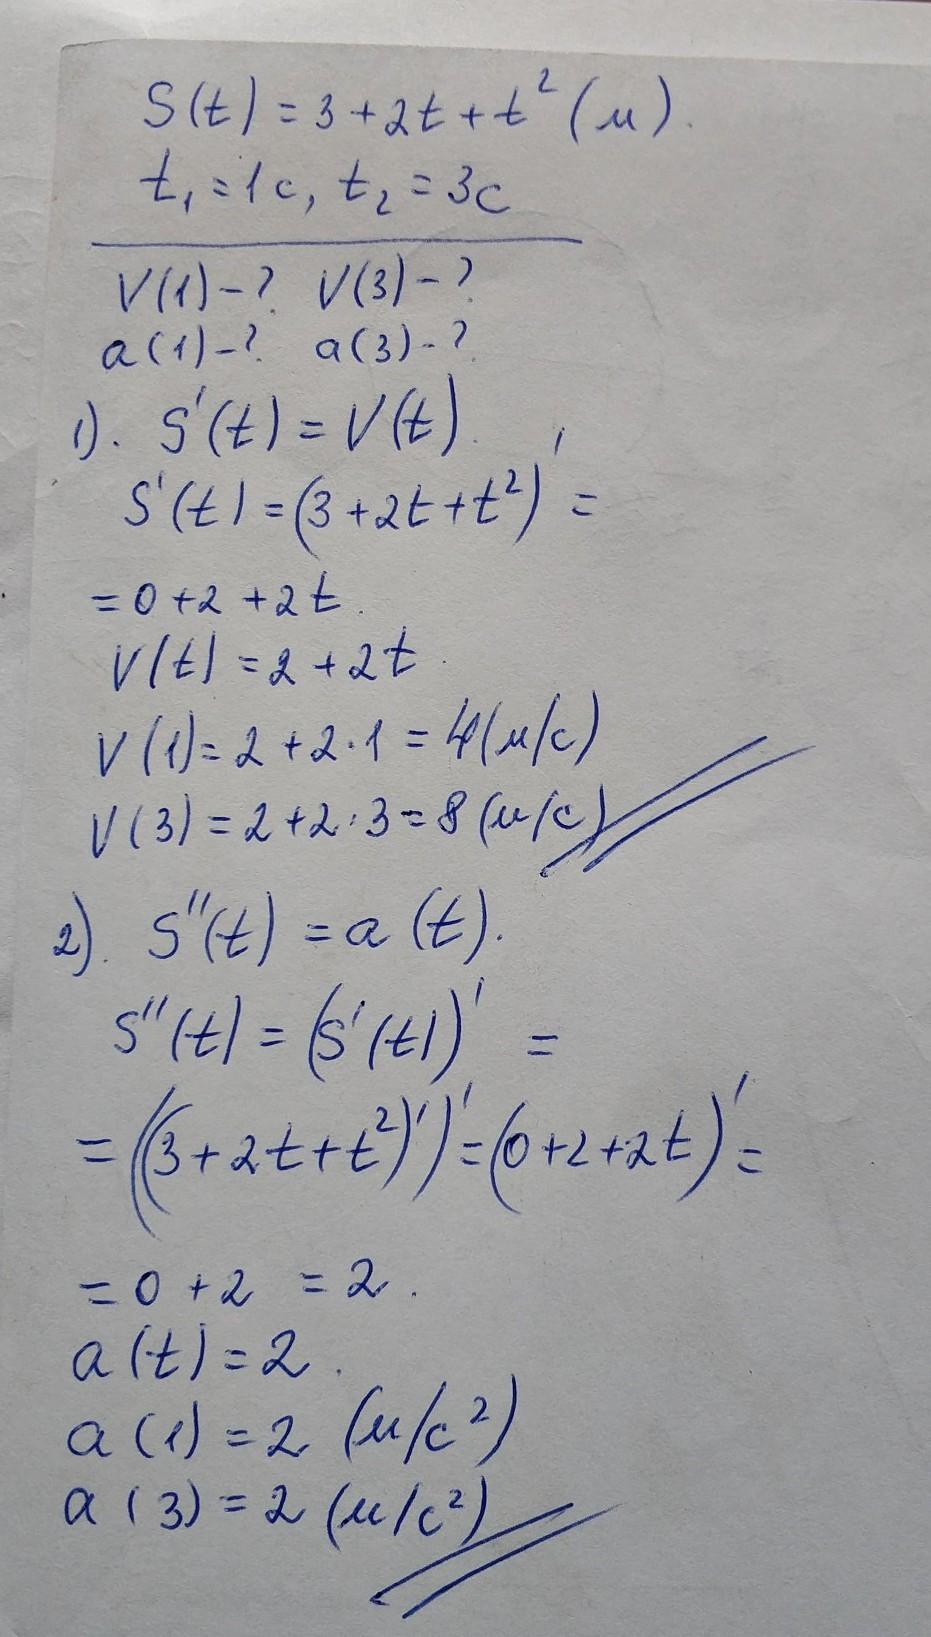 S(t) = 3 + 2t + t² (м).
t₁ = 1с, t₂ = 3с
V(1) - ? V(3) - ?
a(1) - ? a(3) - ?
1). S'(t) = V(t).
S'(t) = (3 + 2t + t²)' =
= 0 + 2 + 2t.
V(t) = 2 + 2t.
V(1) = 2 + 2·1 = 4 (м/с)
V(3) = 2 + 2·3 = 8 (м/с)
2). S''(t) = a(t).
S''(t) = (S'(t))' =
= ((3 + 2t + t²)')' = (0 + 2 + 2t)' =
= 0 + 2 = 2.
a(t) = 2.
a(1) = 2 (м/с²)
a(3) = 2 (м/с²)